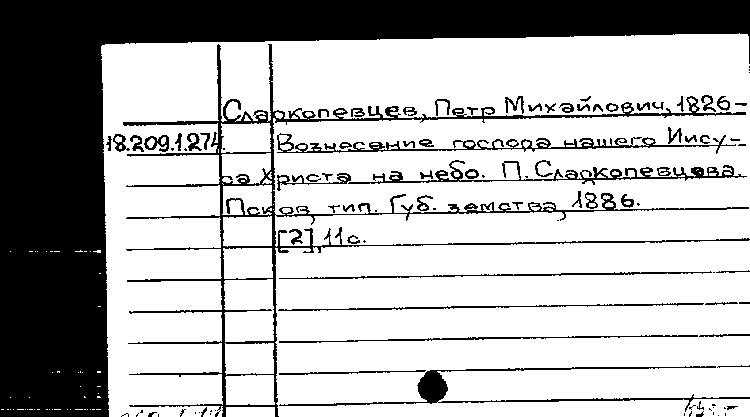 Сладкопевцев, Петр Михайлович, 1826-
18.209.1.274 Вознесение господа нашего Иису-
са Христа на небо. П. Сладкопевцева.
Псков, тип. Губ. земства, 1886.
[2], 11с.